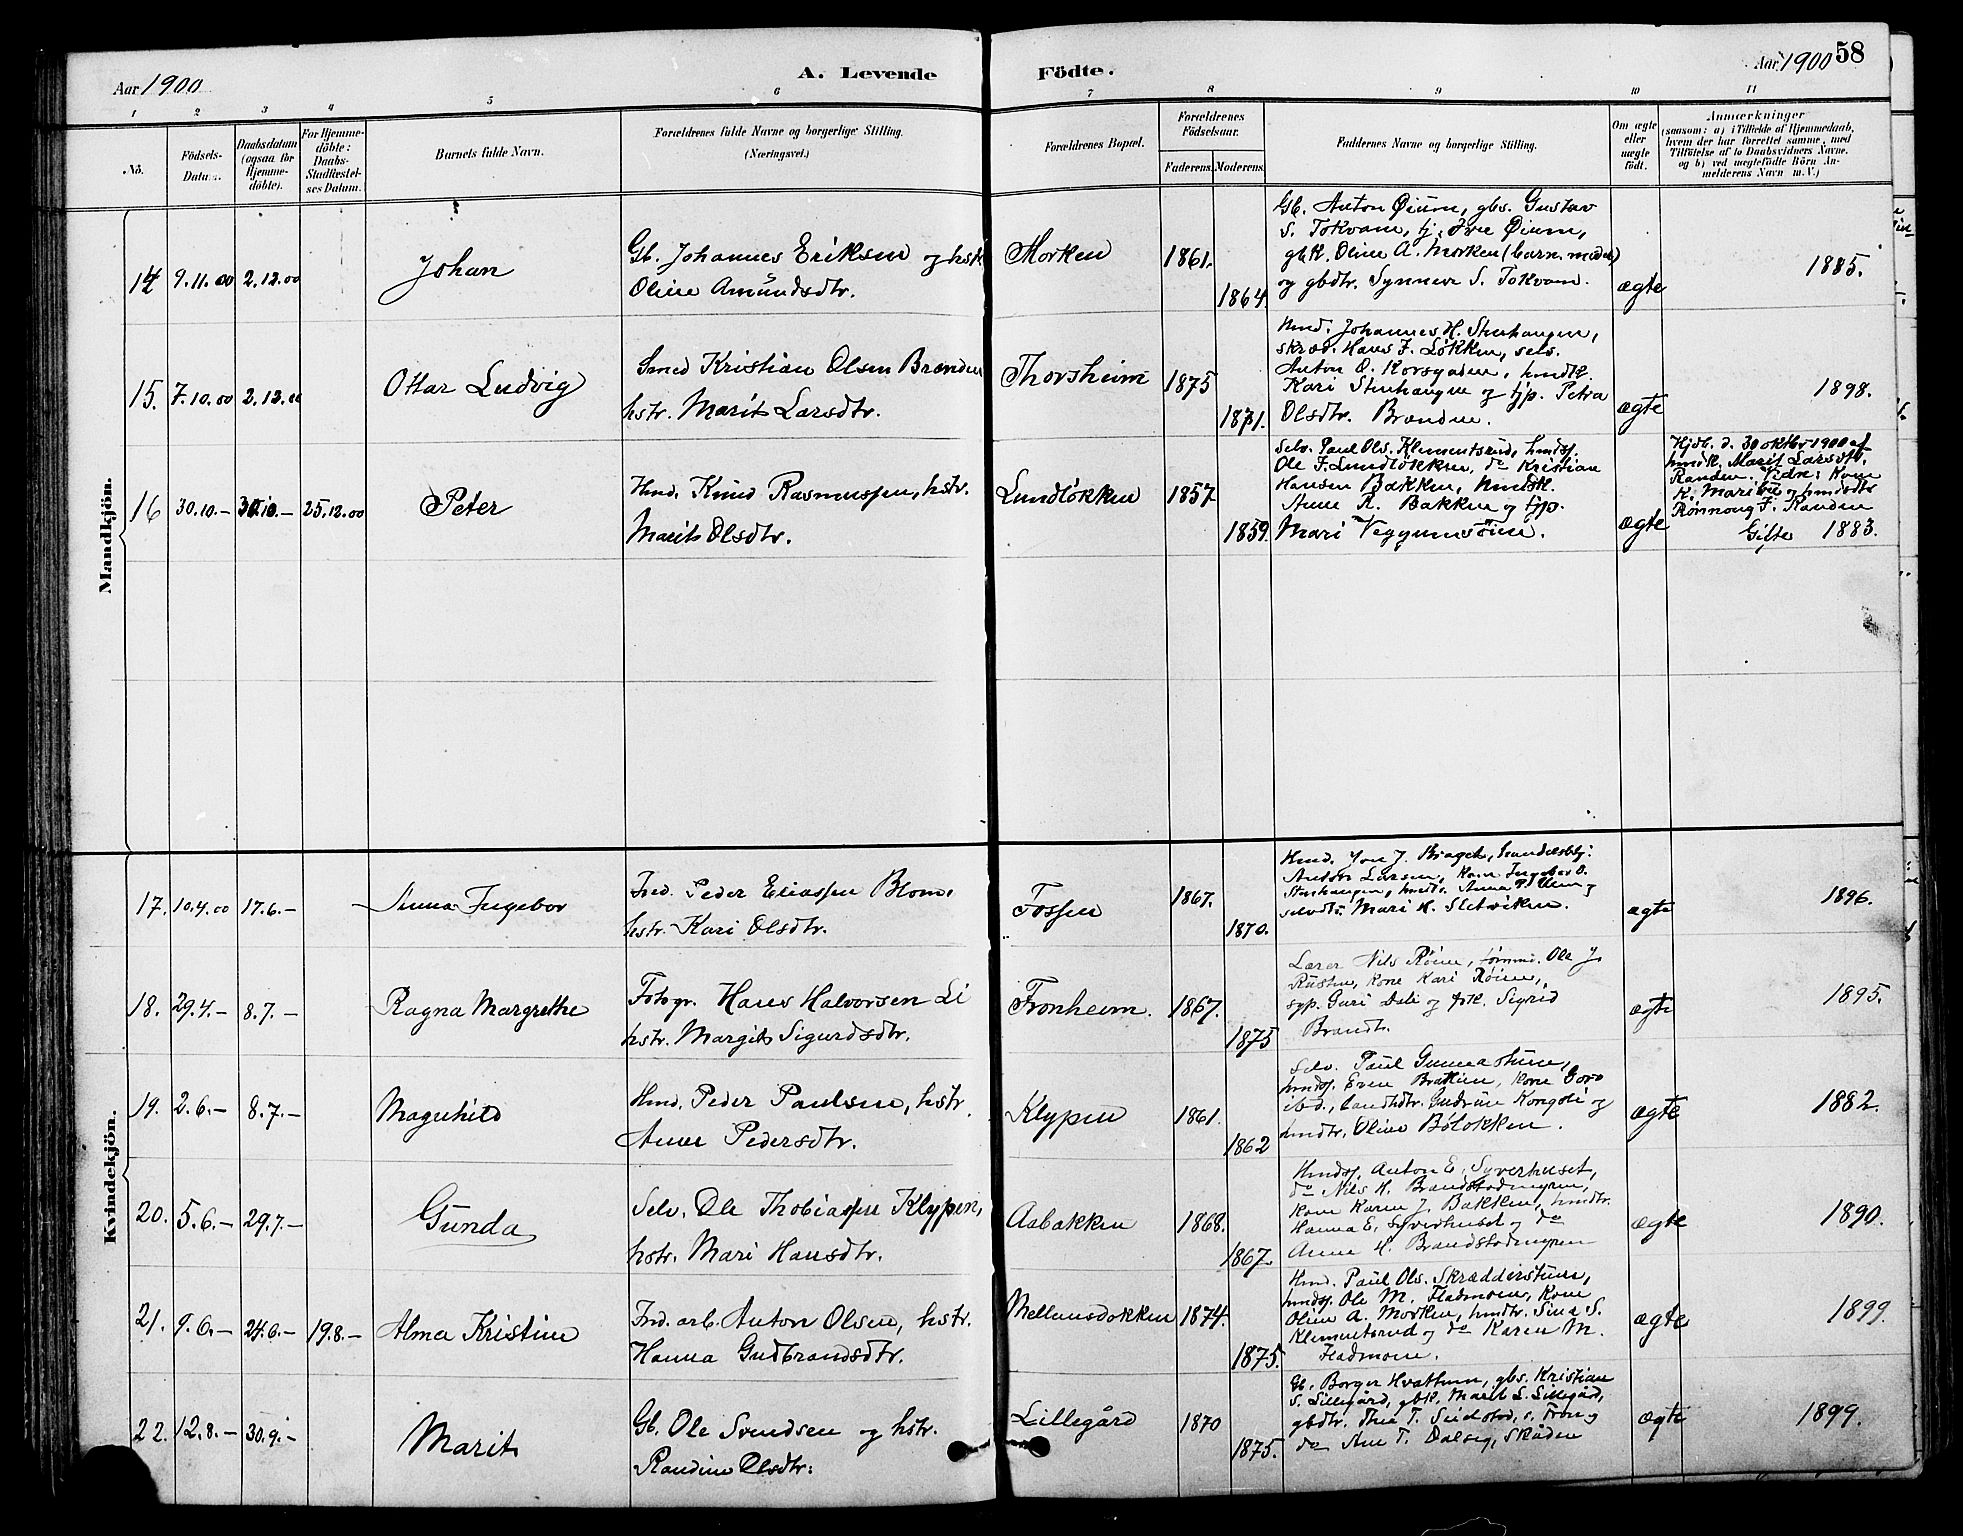 Aar 1900
A. Levende
Fødte.
Aar 1900 58
1 2 3 4 5 6 7 8 9 10 11
No.
Fødsels-
Datum.
Daabsdatum
(ogsaa for
Hjemme-
døbte).
For Hjemme-
døbte:
Daabs-
Stadfæstel-
ses Datum.
Barnets fulde Navn.
Forældrenes fulde Navne og borgerlige Stilling.
(Næringsvei.)
Forældrenes Bopæl.
Forældrenes
Fødselsaar.
Faderens. Moderens.
Faddernes Navne og borgerlige Stilling.
Om ægte
eller
uægte
født.
Anmærkninger
(saasom: a) i Tilfælde af Hjemmedaab,
hvem der har forrettet samme, med
Tilføielse af to Daabsvidners Navne,
og b) ved uægtefødte Børn An-
melderens Navn m. V.)
Mandkjön.
14 9.11.00 2.12.00
Johan
Gb. Johannes Eriksen og hstr.
Oline Amundsdtr.
Morken
1861.
1864.
Gb. Anton Øium, gbs. Gustav
S. Tokvam, tj. Øium,
gbk. Oline A. Morken (barn. moder)
og gbdtr. Synneve S. Tokvam.
ægte
1885.
15. 7.10.00 2.12.00
Ottar Ludvig
Smed Kristian Olsen Brænden
hstr. Marit Larsdtr.
Thorsheim
1875
1871.
Hmd. Johannes H. Stenhaugen,
skræd. Hans F. Løkken, selv.
Anton O. Korsgaden, hmdk.
Kari Stenhaugen og tjp. Petra
Olsdtr. Brænden.
ægte
1898.
16 30.10.– 30.10.– 25.12.00
Peter
Hmd. Knud Rasmussen, hstr.
Marit Olsdtr.
Lundløkken
1857
1859.
Selv. Paul Ols. Klementsrud, hmdsf.
Ole F. Lundløkken, do Kristian
Hansen Bakken, hmdsk.
Anne R. Bakken og tjp.
Mari Veggumsøien.
ægte
Hjdb. d. 30 oktbr 1900 af
hmdk. Marit Larsdtr.
Randen. Vidne: Kone
K. Mari og hmdsdtr
Rønnoug F. Randen
Gifte 1883.
Kvindekjön.
17. 10.4.00 17.6.–
Anna Ingebor
Ind. Peder Eliassen Blom.
hstr. Kari Olsdtr.
Fossen
1867.
1870.
Hmd. Jon J. Braget, handelsbtj.
Anton Larsen, kone Ingebor O.
Stenhaugen, hmdtr. Anna P. og
selvdtr. Mari H. Sletviken.
ægte
1896.
18. 29.4.– 8.7.–
Ragna Margrethe
Fotogr. Hans Halvorsen Li
hstr. Margit Sigurdsdtr.
Fronheim.
1867.
1875
Lærer Nils Røien, tømmd. Ole J.
Rusten, kone Kari Røien,
syp. Guri Dele og frk. Sigrid
Brandt.
ægte
1895.
19. 2.6.– 8.7.–
Magnhild
Hmd. Peder Paulsen, hstr.
Anne Pedersdtr.
Klypen
1861.
1862
Selv. Paul Gunnarstuen,
hmdsf. Even Bratlien, kone Goro
ibd., landhdtr. Gudrun Kongsli og
hmdtr. Oline Bøløkken.
ægte
1882.
20. 5.6.– 29.7.–
Gunda
Selv. Ole Thobiassen Klypen,
hstr. Mari Hansdtr.
Aabakken
1868.
1867.
Hmdsf. Anton E. Syverhuset,
do Nils H. Brandstadmyren,
kone Karen J. Bakken, hmdtr.
Hanna E. Syverhuset og do
Anne H. Brandstadmyren
ægte
1890.
21. 9.6.– 24.6.– 19.8.–
Alma Kristine
Ind. arb. Anton Olsen, hstr.
Hanna Gudbrandsdtr.
Mellemsdokken
1874.
1875.
Hmd. Paul Ols. Skrædderstuen,
hmdsf. Ole M. Fladmoen, kone
Oline A. Morken, hmdtr. Sina S.
Klementsrud og do Karen M.
Fladmoen.
ægte
1899.
22. 12.8.– 30.9.–
Marit
Gb. Ole Svendsen og hstr.
Randine Olsdtr.
Lillegård
1870
1875.
Gb. Borger Hvattum, gbs. Kristian
S. Lillegård, gbk. Marit S. Lillegård,
gbdtr. Thea T. Sulstad, s. Fron og
do Ane T. Dalseg, Skåden
ægte
1899.